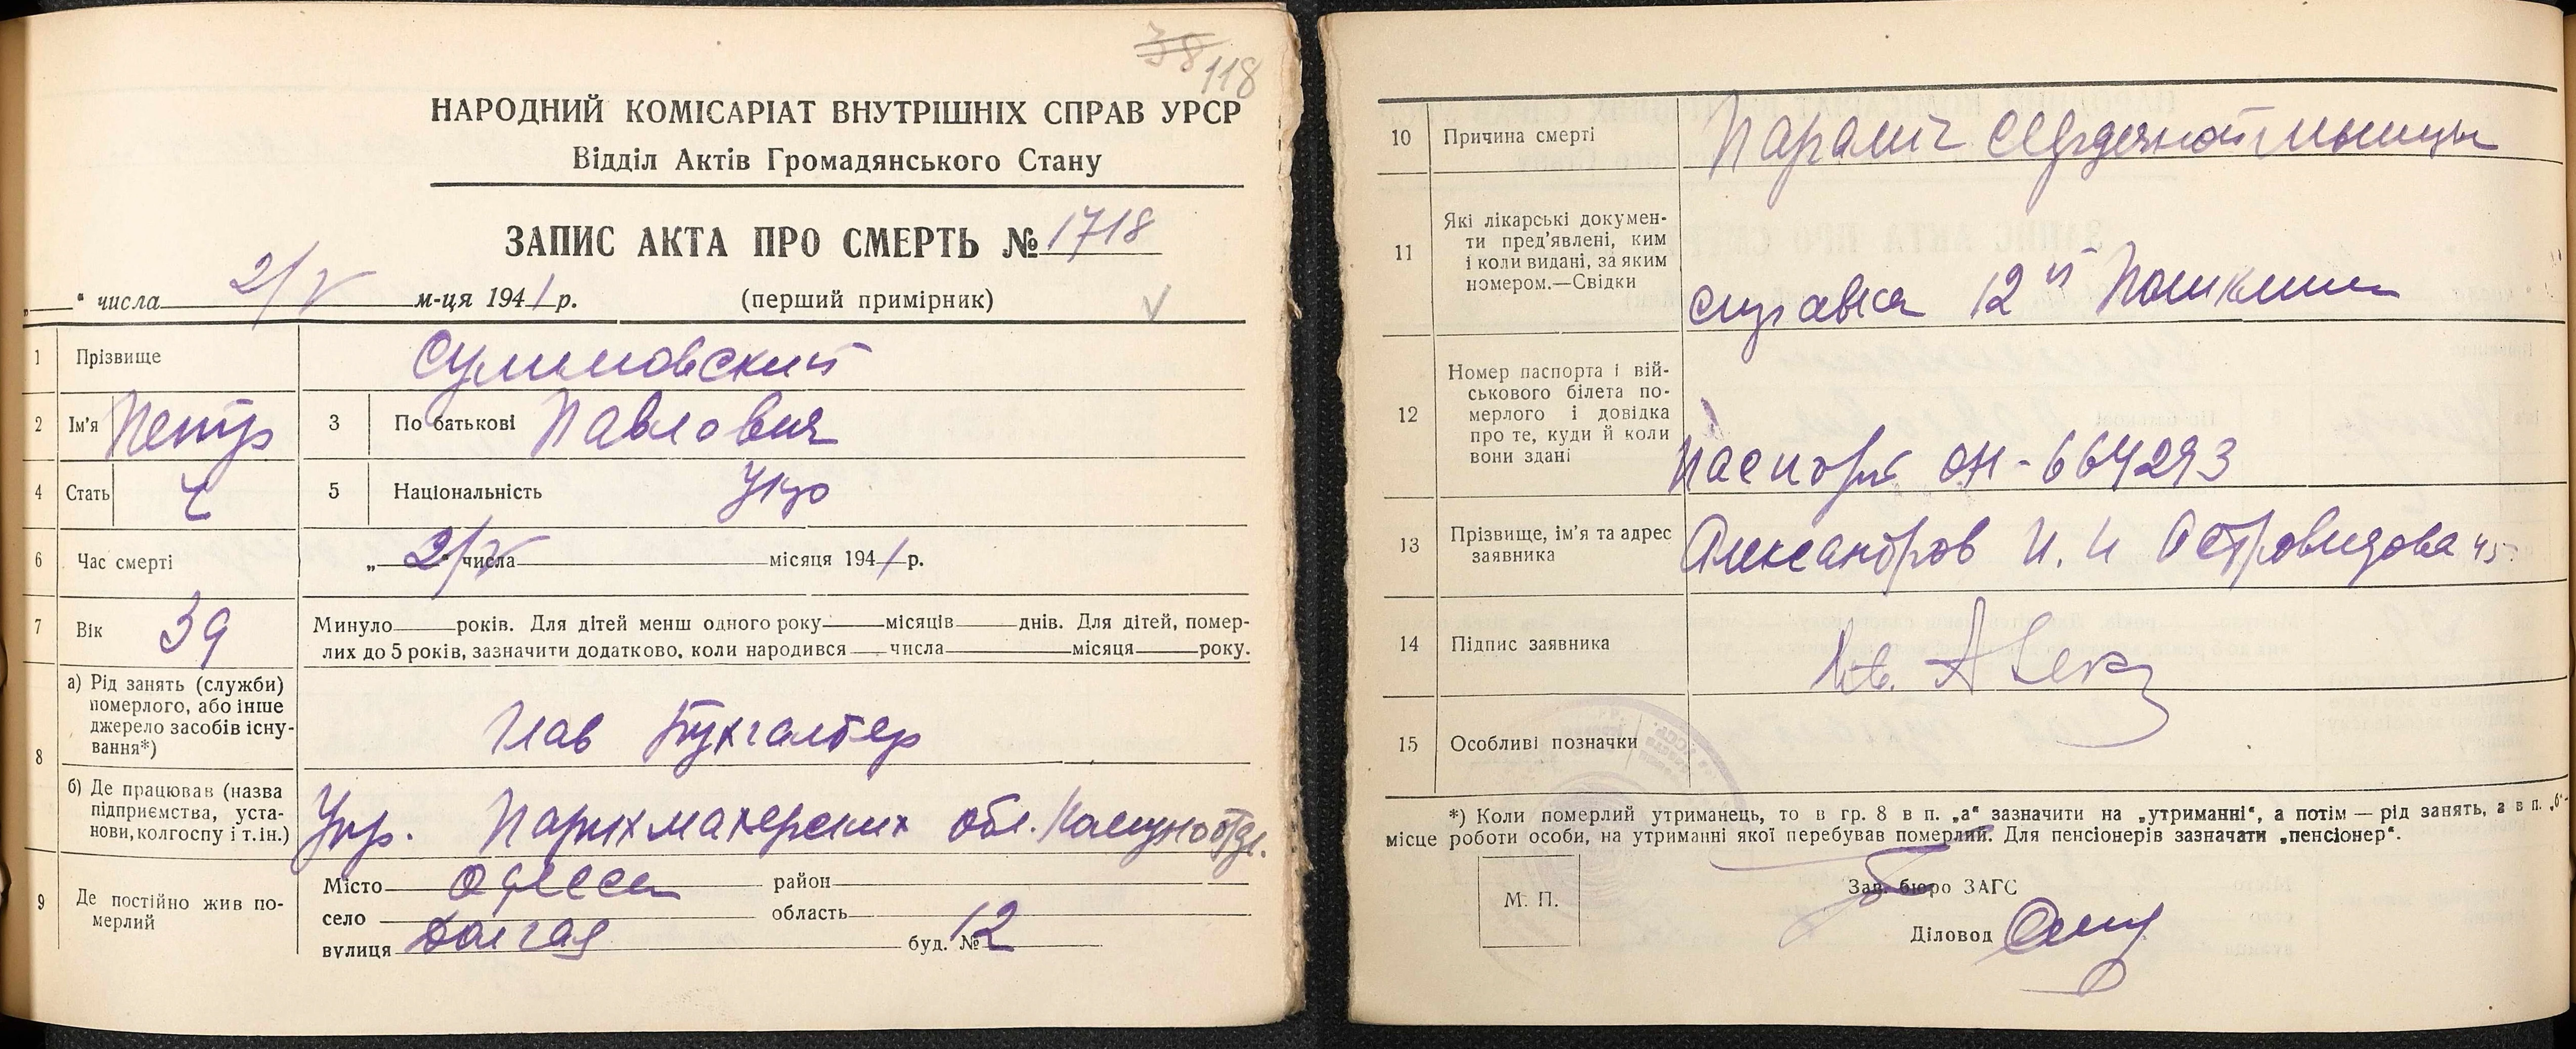 38 118
НАРОДНИЙ КОМІСАРІАТ ВНУТРІШНІХ СПРАВ УРСР
Відділ Актів Громадянського Стану
ЗАПИС АКТА ПРО СМЕРТЬ № 1718
„ " числа 2/V м-ця 1941 р. (перший примірник)
1 Прізвище Сулимовский
2 Ім'я Петр 3 По батькові Павлович
4 Стать Ч 5 Національність Укр
6 Час смерті „ 2/V " числа місяця 1941 р.
7 Вік 39 Минуло років. Для дітей менш одного року місяців днів. Для дітей, помер-
лих до 5 років, зазначити додатково, коли народився числа місяця року.
8 а) Рід занять (служби)
померлого, або інше
джерело засобів існу-
вання*)
Глав Бухгалтер
б) Де працював (назва
підприємства, уста-
нови, колгоспу і т. ін.)
Упр. Парихмахерских обл. Комуноотдел.
9 Де постійно жив по-
мерлий
Місто Одесса район
село область
вулиця Долгая буд. № 12
10 Причина смерті Параліч сердечной мышцы
11 Які лікарські докумен-
ти пред'явлені, ким
і коли видані, за яким
номером.—Свідки
справка 12 й Поликлин
12 Номер паспорта і вій-
ськового білета по-
мерлого і довідка
про те, куди й коли
вони здані
Паспорт ОН-664293
13 Прізвище, ім'я та адрес
заявника
Александров И. И Островидова 45
14 Підпис заявника
15 Особливі позначки
*) Коли померлий утриманець, то в гр. 8 в п. „а" зазначити на „утриманні", а потім — рід занять, а в п. „б"-
місце роботи особи, на утриманні якої перебував померлий. Для пенсіонерів зазначати „пенсіонер".
М. П.
Зав. бюро ЗАГС
Діловод